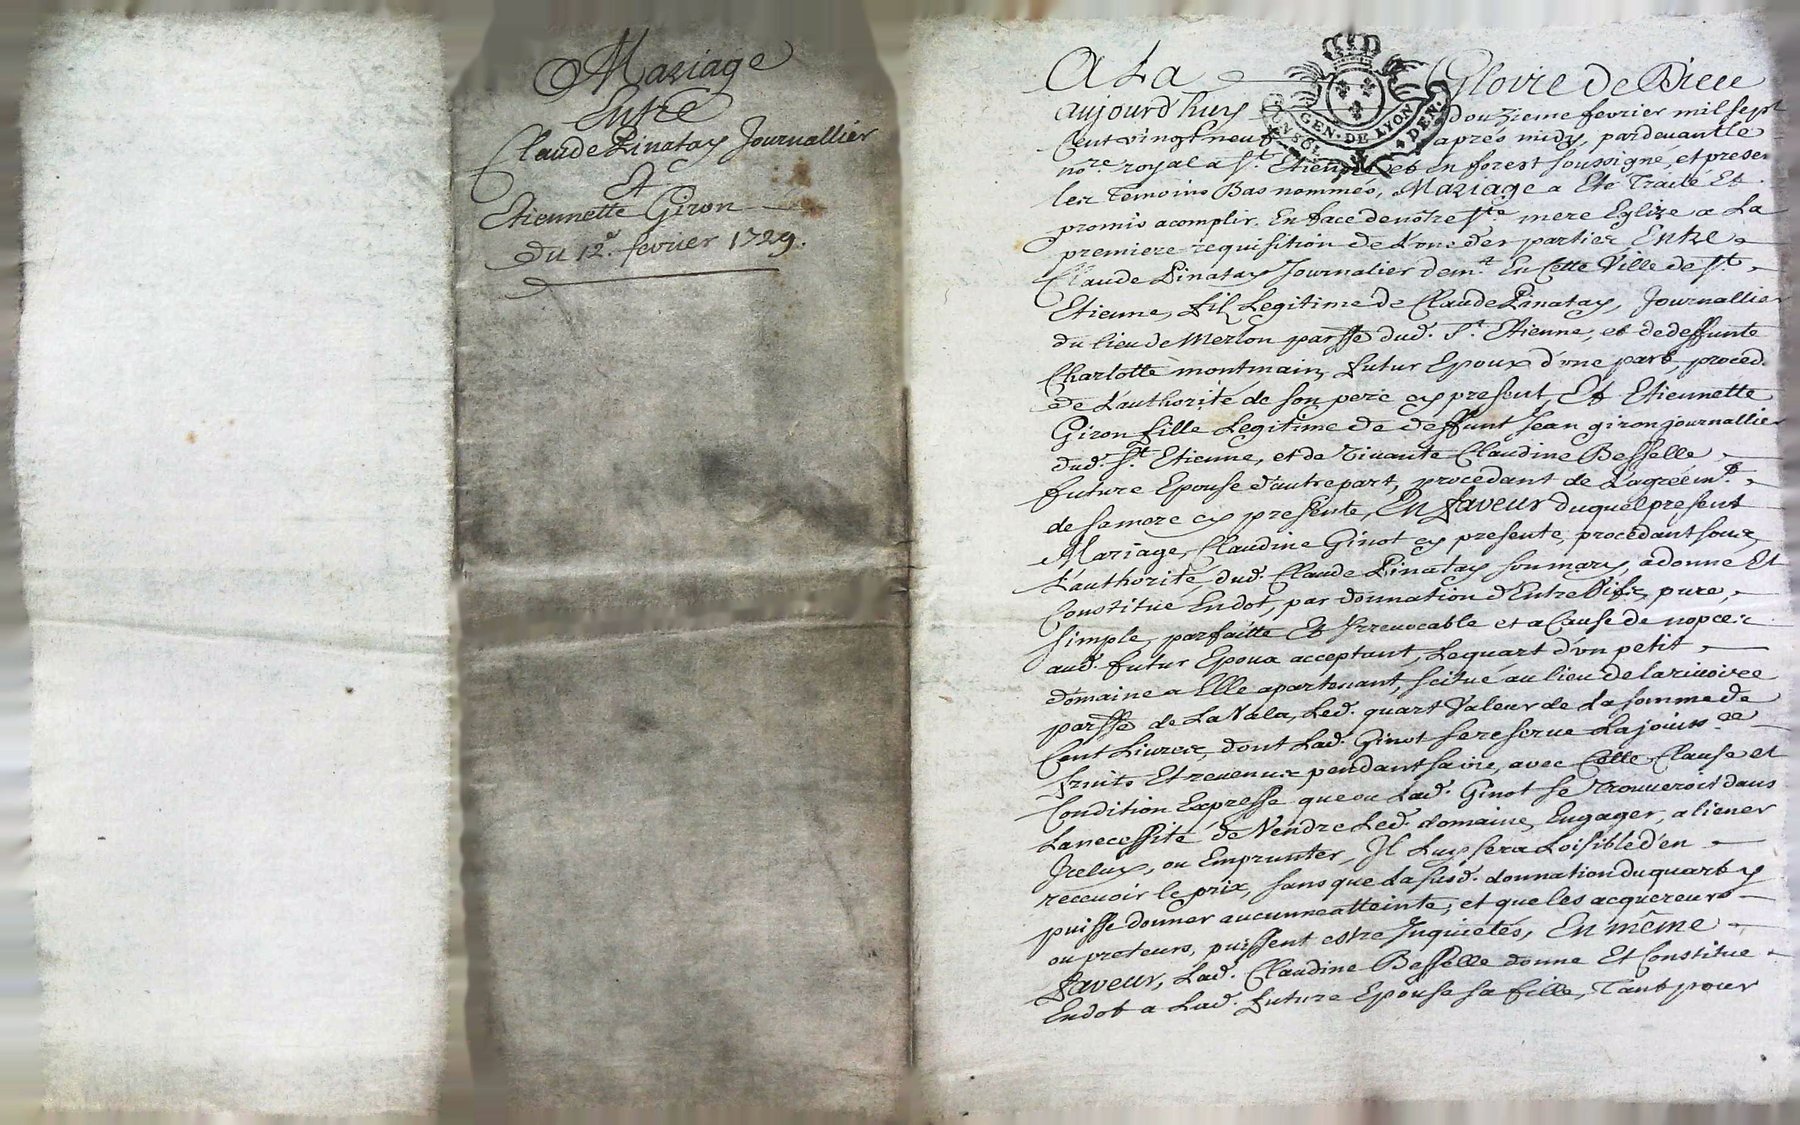 Mariage
Entre
Claude Linatay Journallier
Et
Etiennette Giron
du 12e. fevrier 1729.
A La Gloire de Dieu
aujourd'huy douzieme fevrier mil sept
Cent vingt neuf apres midy, pardevant le
nore. royal a St. Etienne en forest soussigné, et presen
les Temoins Bas nommés, Mariage a Eté Traité Et
promis acomplir En face de nôtre Ste. mere Eglize a La
premiere requisition de L'une des parties Entre
Claude Linatay Journalier demt. En Cette Ville de St.
Etienne, fils Legitime de Claude Linatay, Journallier
du lieu de Merlon parsse dud. St. Etienne, et de deffunte
Charlotte montmain, futur Epoux d'une part, proced.
de L'authorité de son pere cy present, Et Etiennette
Giron fille Legitime de deffunt Jean giron journallier
dud. St. Etienne, et de vivante Claudine Besselle
future Epouse d'autre part, procedant de L'agréemt.
de sa mere cy presente, En faveur duquel present
Mariage, Claudine Ginot cy presente, procedant sous
L'authorité dud. Claude Linatay son mary, a donne Et
Constitué En dot, par donnation d'Entre Vifs, pure,
simple, parfaitte Et Irrevocable et a Cause de nopces
aud. futur Epoux acceptant, Le quart d'un petit
domaine a Elle apartenant, scitué au lieu de la rivoire
parsse de La Vala, Led. quart Valeur de La somme de
Cent Livres, dont Lad. Ginot se reserve La jouissce
fruits Et revenus pendant sa vie, avec Cette Clause et
Condition Expresse que ou Lad. Ginot se trouveroit dans
La necessité de Vendre Led. domaine, Engager, aliener
Jceluy, ou Emprunter, Jl Luy sera Loisible d'en
recevoir le prix, sans que La susd. donnation du quart y
puisse donner aucunne atteinte, et que les acquereurs
ou preteurs, puissent estre Jnquietés, En même
faveur, Lad. Claudine Besselle donne Et Constitue
En dot a Lad. future Epouse sa fille, Tant pour
GEN. DE LYON